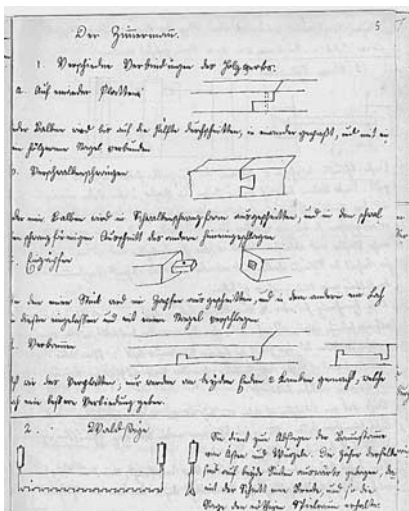 5
Der Zimmermann.
1. Verschiedene Verbindungen des Holzwerks.
a. Auf einander Platten
jeder Balken wird bis auf die Hälfte durchschnitten, in einander gepaßt, und mit ei
nem hölzernen Nagel verbunden
b. Verschwalbenschwänzen
der eine Balken wird in Schwalbenschwanzform ausgeschnitten, und in den schwal
benschwanzförmigen Ausschnitt des andern hineingeschlagen
Einzapfen
In dem einen Stück wird ein Zapfen ausgeschnitten, und in dem andern ein Loch
dieser eingelassen und mit einem Nagel verschlagen
wie der Verplatten, nur werden an beyden Enden 2 gemacht, welche
eine bessere Verbindung geben.
2. Waldsäge
Sie dient zum Absägen der Baumstämme
von Ästen und Wurzeln. Die Zähne derselben
sind auf beyde Seiten auswärts gebogen, da
mit der Schnitt von Breite, und so die
Säge den nöthigen Spielraum erhalte.